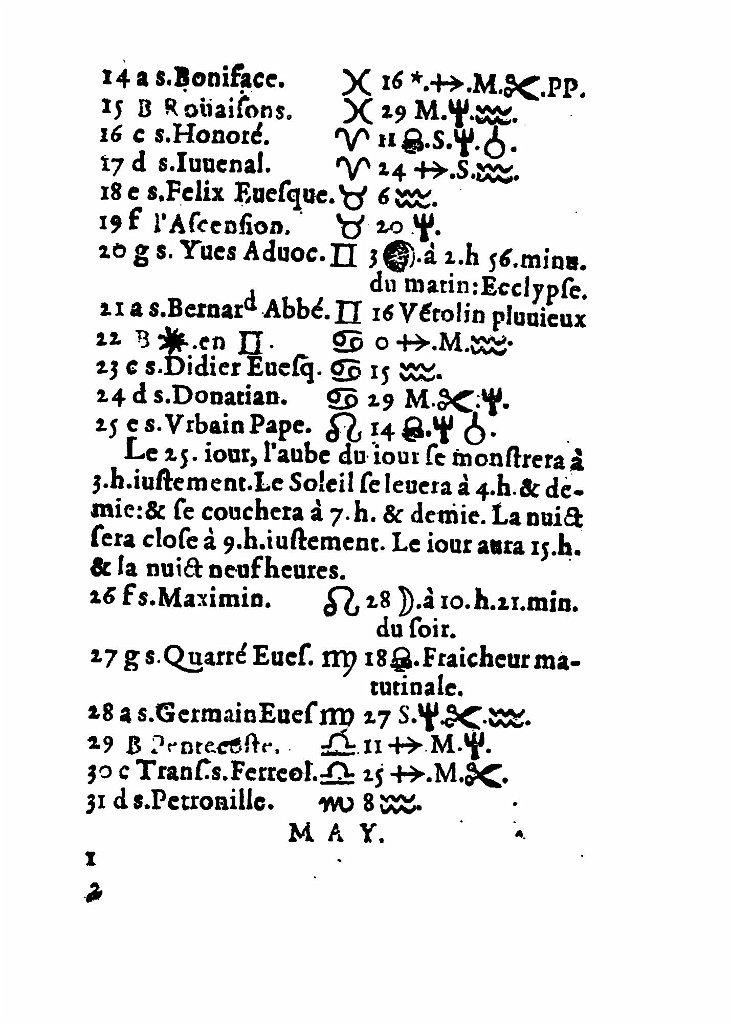 14 a s.Boniface. ♓ 16 *.↔.M.✂.PP.
15 B Roüaiſons. ♓ 29 M.♆.♒.
16 c s.Honoré. ♈ 11 .S.♆.♁.
17 d s.Iuuenal. ♈ 24 ↔.S.♒.
18 e s.Felix Eueſque. ♉ 6 ♒.
19 f l'Aſcenſion. ♉ 20 ♆.
20 g s. Yues Aduoc. ♊ 3 .à 2.h 56.minu.
du matin:Ecclypſe.
21 a s.Bernard Abbé. ♊ 16 Vétolin pluuieux
22 B ☀.en ♊. ♋ 0 ↔.M.♒.
23 c s.Didier Eueſq. ♋ 15 ♒.
24 d s.Donatian. ♋ 29 M.✂.♆.
25 e s.Vrbain Pape. ♌ 14 .♆ ♁.
Le 25. iour, l'aube du iour ſe monſtrera à
3.h.iuſtement.Le Soleil ſe leuera à 4.h.& de-
mie:& ſe couchera à 7.h. & demie. La nuict
ſera cloſe à 9.h.iuſtement. Le iour aura 15.h.
& la nuict neuf heures.
26 f s.Maximin. ♌ 28 ☽.à 10.h.21.min.
du ſoir.
27 g s.Quarré Eueſ. ♍ 18 .Fraicheur ma-
tutinale.
28 a s.Germain Eueſ ♍ 27 S.♆.✂.♒.
29 B Pentecoſte. ♎ 11 ↔ M.♆.
30 c Tranſ.s.Ferreol. ♎ 25 ↔.M.✂.
31 d s.Petronille. ♏ 8 ♒.
M A Y.
1
2